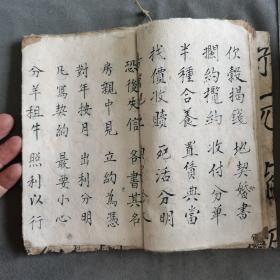 伙穀揭錢 地契婚書
擱約攬約 收付分单
半種合養 置債典當
找價收贖 死活分明
恐後失信 各書其名
房親中見 立約為憑
對年按月 出利分明
凡寫契約 最要小心
分羊租牛 照利以行